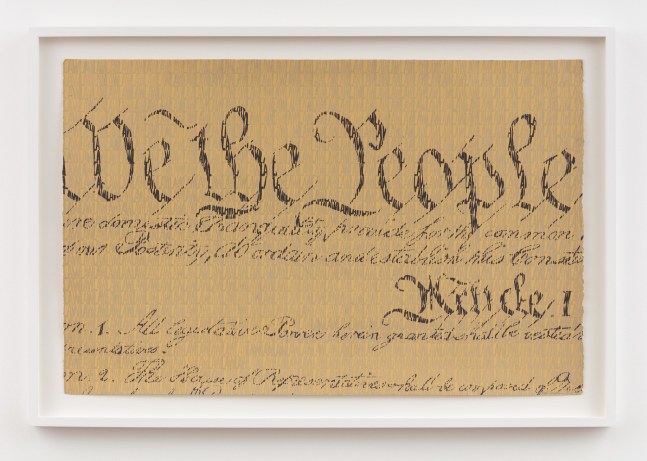 We the People
ure domestic Tranquility, provide for the common
our Posterity, do ordain and establish this Constitu
Article. 1
on. 1. All legislative Powers herein granted shall be vested in
presentatives.
on. 2. The House of Representatives shall be composed of Me